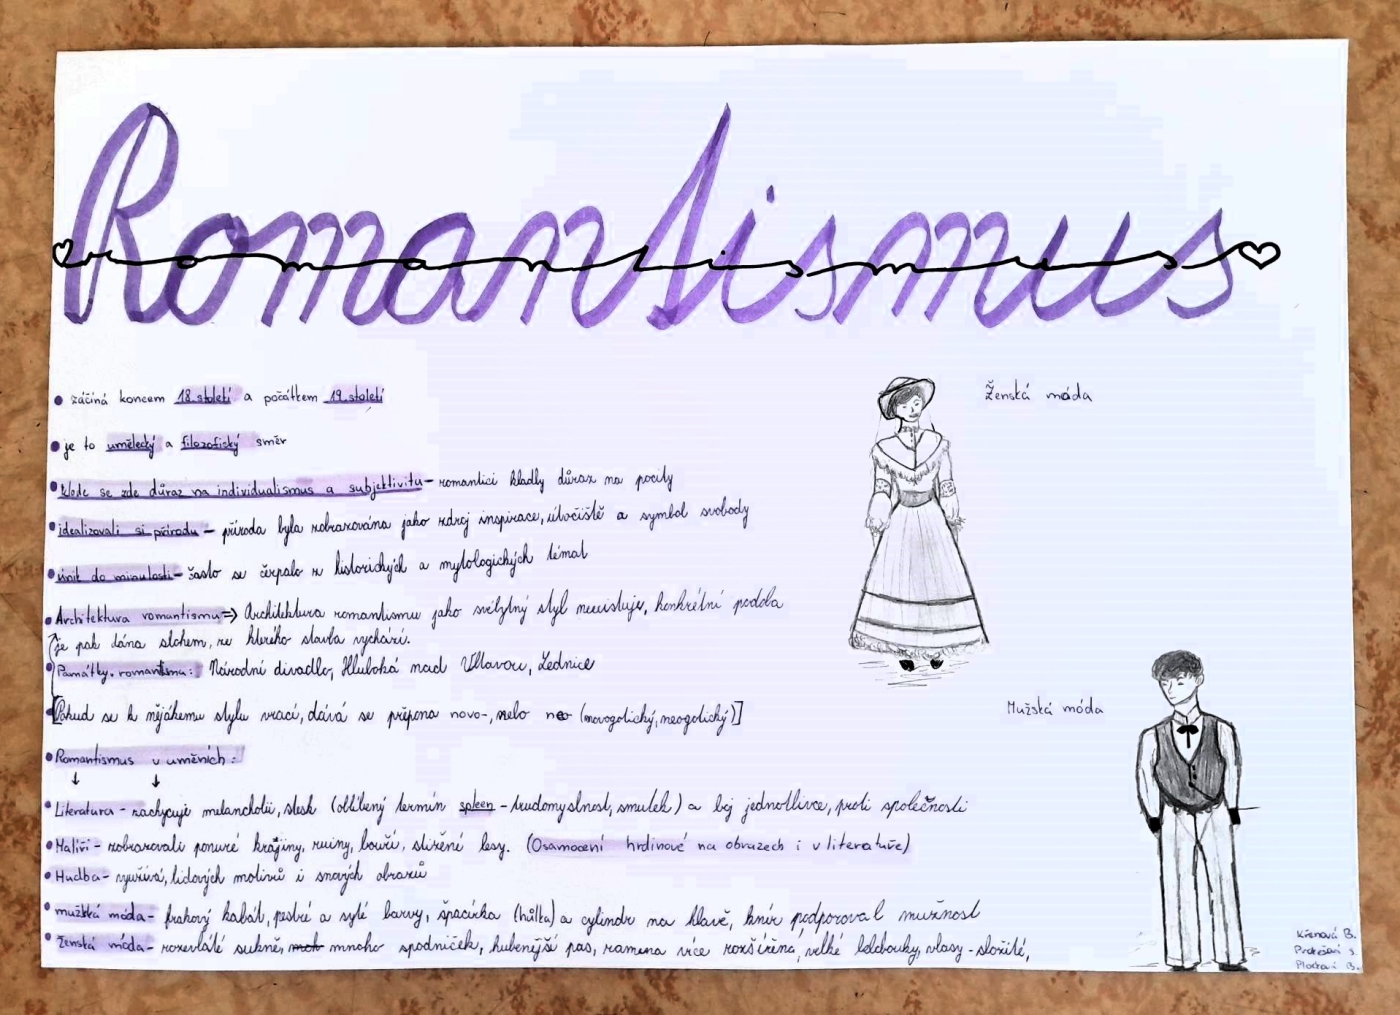 Romantismus
romantismus
začíná koncem 18 století a počátkem 19 století
je to umělecký a filozofický směr
klade se zde důraz na individualismus a subjektivitu - romantici kladly důraz na pocity
idealizovali si přírodu - příroda byla zobrazována jako zdroj inspirace, útočiště a symbol svobody
únik do minulosti - často se čerpalo z historických a mytologických témat
Architektura romantismu => Architektura romantismu jako svébytný styl neexistuje, konkrétní podoba
je pak dána slohem, ze kterého stavba vychází.
Památky romantismu: Národní divadlo, Hluboká nad Vltavou, Lednice
[Pokud se k nějakému stylu vrací, dává se přípona novo-, nebo neo (novogotický, neogotický)]
Romantismus v uměních:
↓ ↓
Literatura - zachycuje melancholii, stesk (oblíbený termín spleen - trudomyslnost, smutek) a boj jednotlivce, proti společnosti
Malíři - zobrazovali ponuré krajiny, ruiny, bouři, stižené lesy. (Osamocení hrdinové na obrazech i v literatuře)
Hudba - využívá, lidových motivů i snových obrazů
mužská móda - frakový kabát, pestré a syté barvy, špacírka (hůlka) a cylindr na hlavě, knír podporoval mužnost
ženská móda - rozevláté sukně, mnoho spodniček, hubenější pas, ramena více rozšířena, velké kloboučky, vlasy - složité,
Ženská móda
Mužská móda
Křenová B.
B.